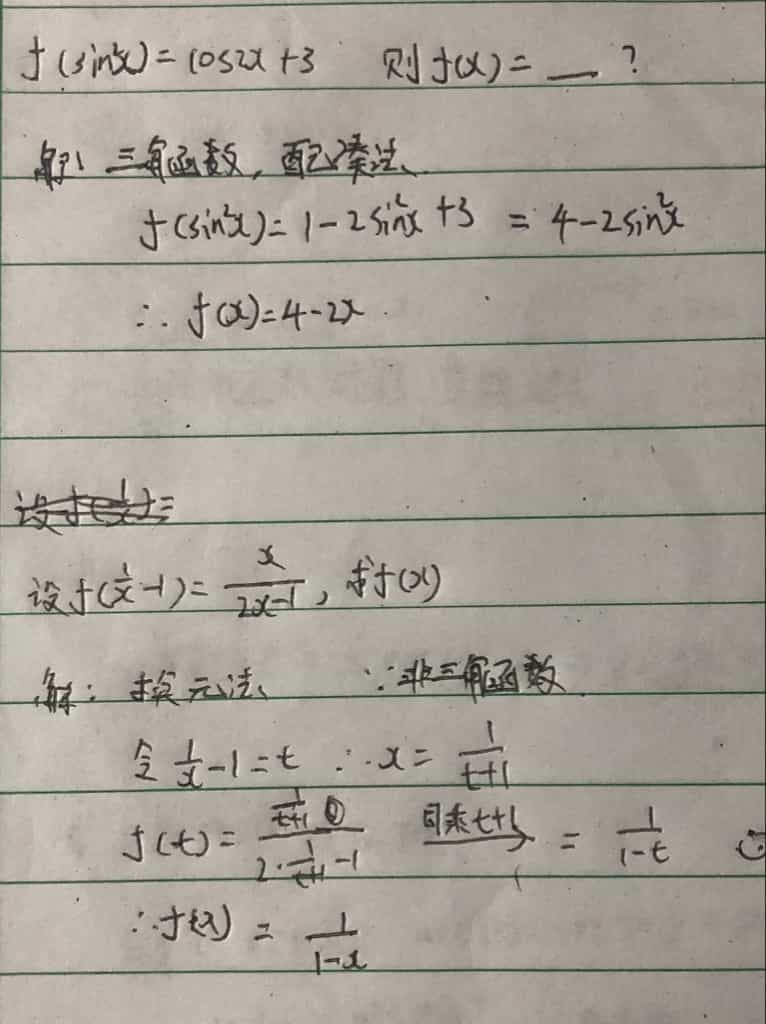 f(sin²x)=cos2x+3 则f(x)=__?
解: 三角函数,配凑法、
f(sin²x)=1-2sin²x+3=4-2sin²x
∴f(x)=4-2x.
设f(1/x)=
设f(1/x-1)=x/(2x-1),求f(x)
解:换元法、∵非三角函数.
令1/x-1=t ∴x=1/(t+1)
f(t)=(1/(t+1))/(2·1/(t+1)-1) 同乘t+1→=1/(1-t)
∴f(x)=1/(1-x)